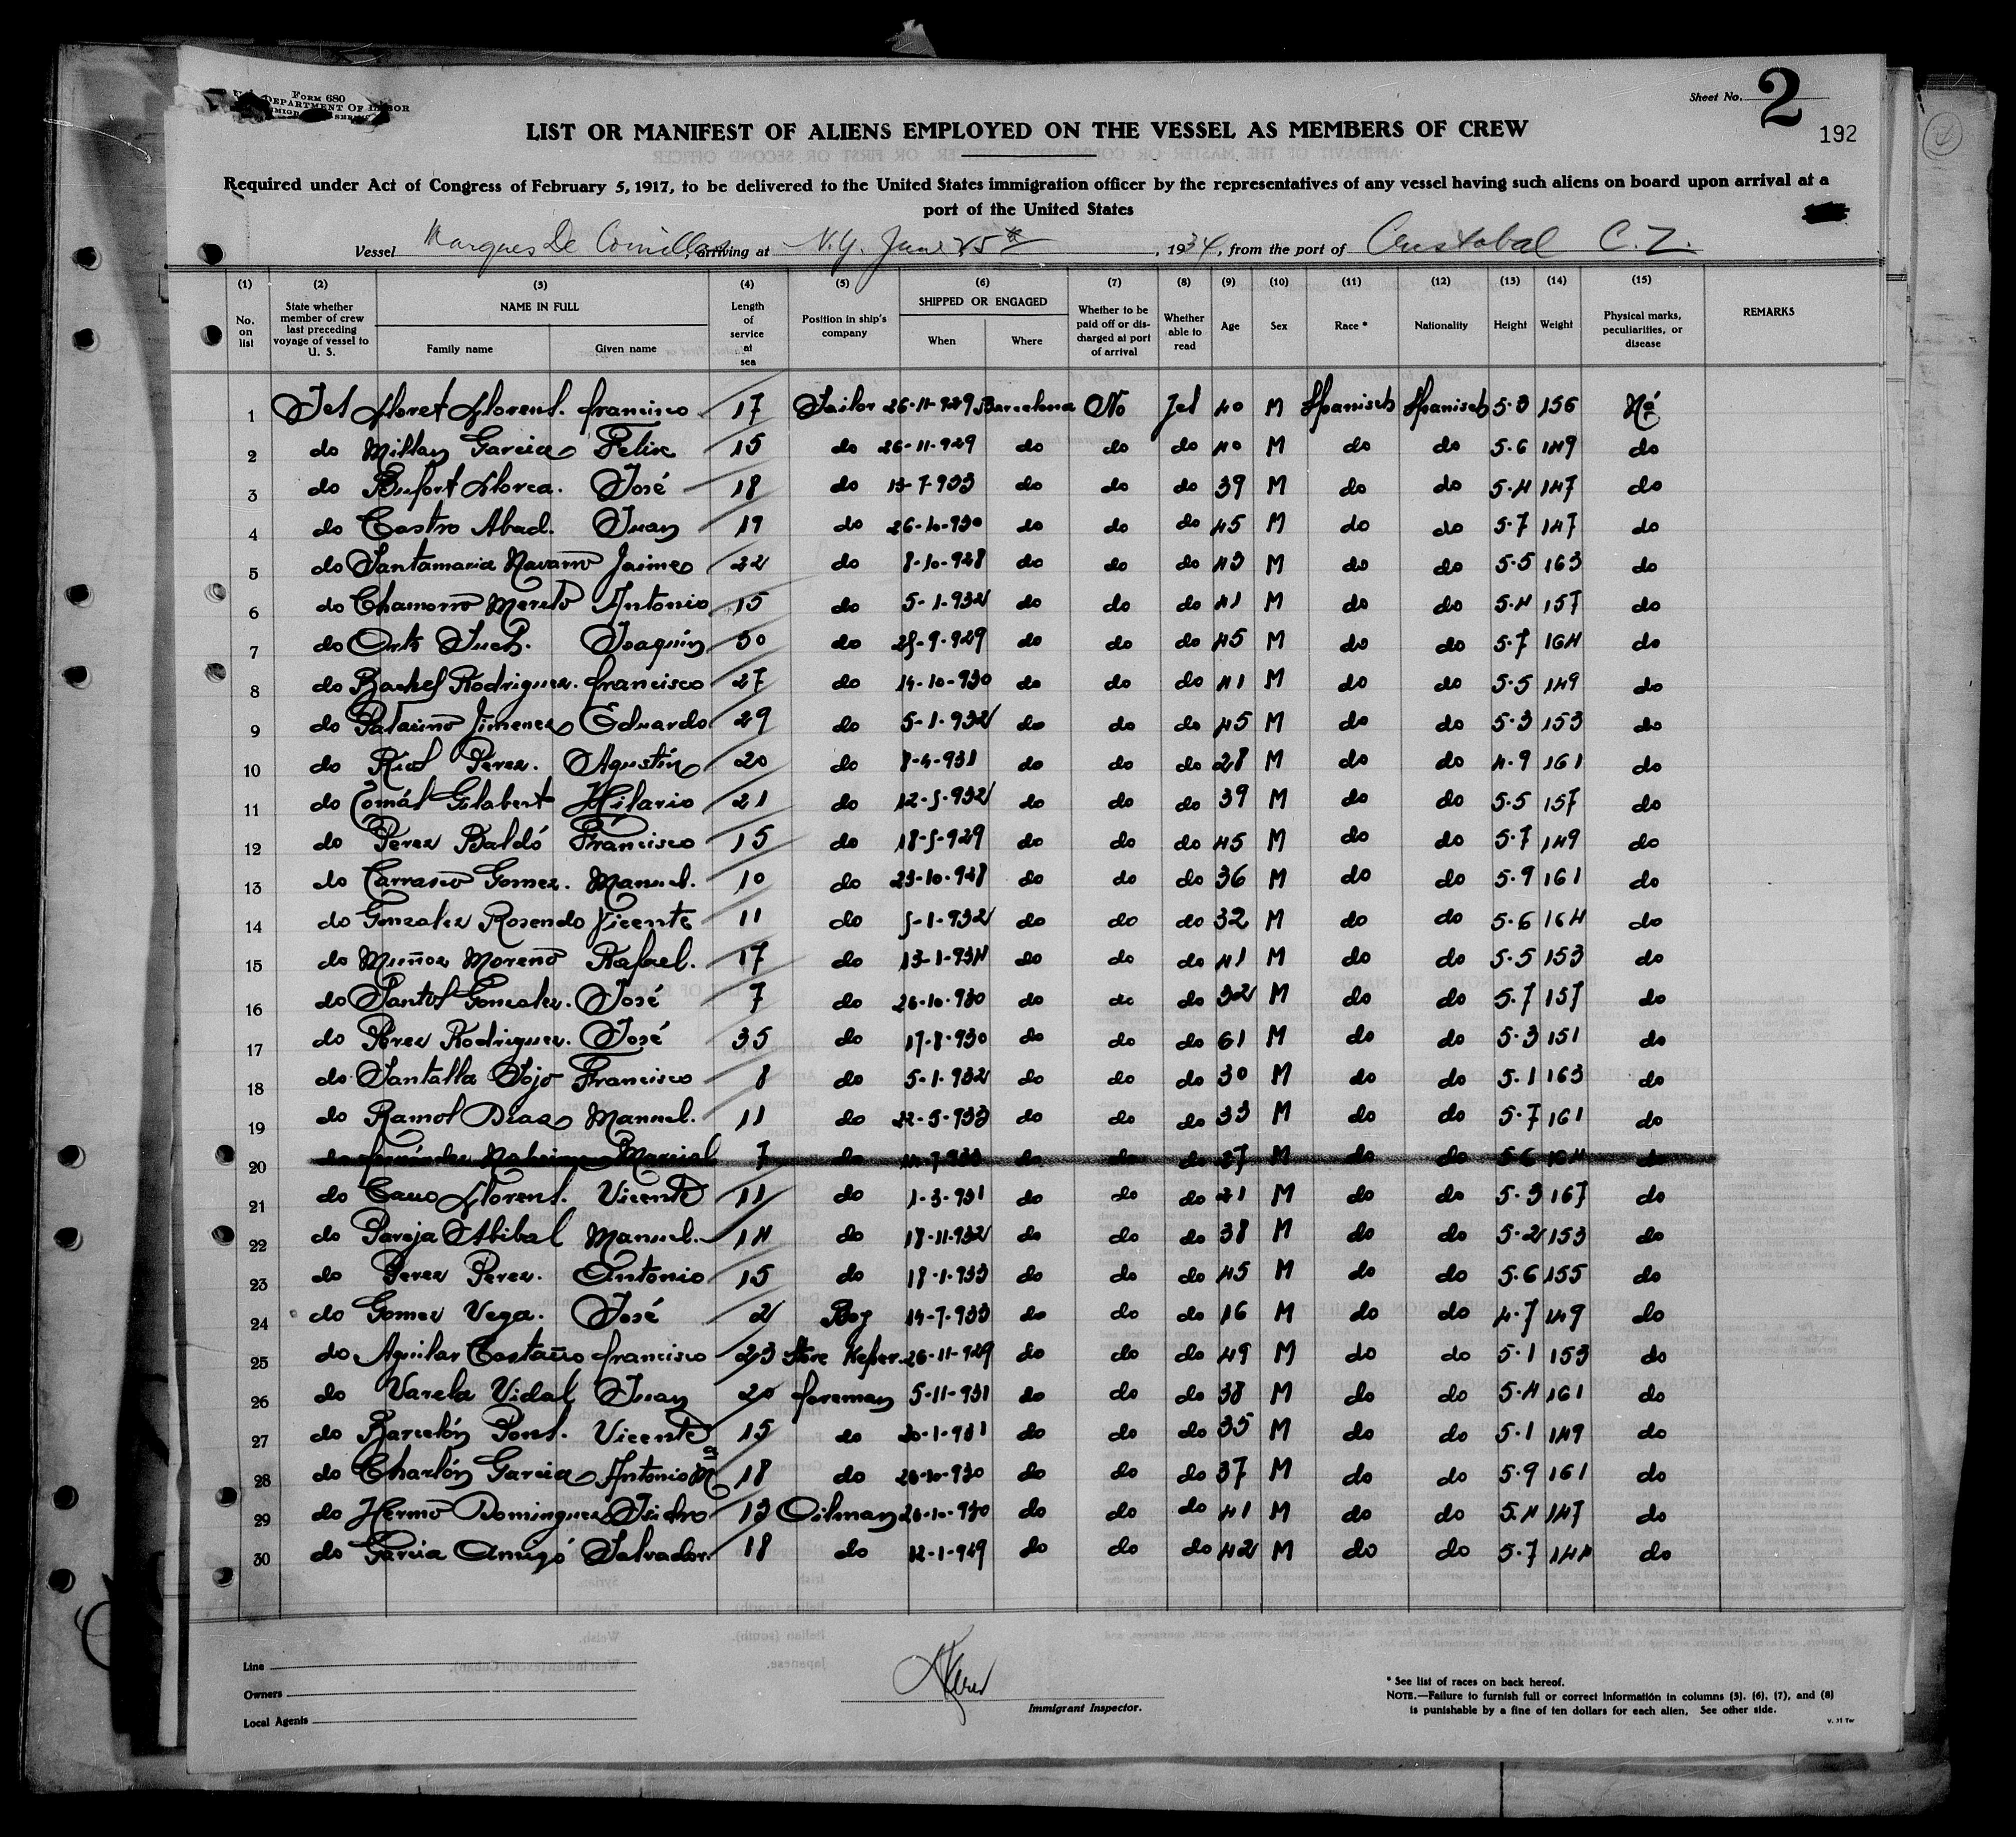 Form 680
DEPARTMENT OF LABOR
Sheet No. 2
192
LIST OR MANIFEST OF ALIENS EMPLOYED ON THE VESSEL AS MEMBERS OF CREW
Required under Act of Congress of February 5, 1917, to be delivered to the United States immigration officer by the representatives of any vessel having such aliens on board upon arrival at a
port of the United States
Vessel Marques De Comillas, arriving at N.Y. June 25th, 1934, from the port of Cristobal C.Z.
(1) (2) (3) (4) (5) (6) (7) (8) (9) (10) (11) (12) (13) (14) (15)
No. on list State whether member of crew last preceding voyage of vessel to U. S. NAME IN FULL Family name Given name Length of service at sea Position in ship's company SHIPPED OR ENGAGED When Where Whether to be paid off or discharged at port of arrival Whether able to read Age Sex Race * Nationality Height Weight Physical marks, peculiarities, or disease REMARKS
1 Jes Lloret Llorens. francisco 17 Sailor 26-11-929 Barcelona No Jes 40 M Spanisch Spanisch 5.3 156 No
2 do Millan Garcia Felix 15 do 26-11-929 do do do 40 M do do 5.6 149 do
3 do Bufort Llorca. José 18 do 13-7-933 do do do 39 M do do 5.4 147 do
4 do Castro Abad. Juan 19 do 26-10-930 do do do 45 M do do 5.7 147 do
5 do Santamaria Navarro Jaime 22 do 8-10-928 do do do 43 M do do 5.5 163 do
6 do Chamorro Antonio 15 do 5-1-932 do do do 41 M do do 5.4 157 do
7 do Joaquin 30 do 25-9-929 do do do 45 M do do 5.7 164 do
8 do Rodriguez. francisco 27 do 14-10-930 do do do 41 M do do 5.5 149 do
9 do Jimenez Eduardo 29 do 5-1-932 do do do 45 M do do 5.3 153 do
10 do Perez. Agustin 20 do 8-4-931 do do do 28 M do do 4.9 161 do
11 do Gilabert Hilario 21 do 12-5-932 do do do 39 M do do 5.5 157 do
12 do Perez Baldó Francisco 15 do 18-5-929 do do do 45 M do do 5.7 149 do
13 do Carrasco Gomez. Manuel. 10 do 23-10-928 do do do 36 M do do 5.9 161 do
14 do Gonzalez Rosendo Vicente 11 do 5-1-932 do do do 32 M do do 5.6 164 do
15 do Muñoz Moreno Rafael. 17 do 13-1-934 do do do 41 M do do 5.5 153 do
16 do Santos Gonzalez. José 7 do 26-10-930 do do do 32 M do do 5.7 157 do
17 do Perez Rodriguez. José 35 do 17-8-930 do do do 61 M do do 5.3 151 do
18 do Santalla Sojo Francisco 8 do 5-1-932 do do do 30 M do do 5.1 163 do
19 do Ramos Diaz Manuel. 11 do 22-5-933 do do do 33 M do do 5.7 161 do
20 do Marcial 7 do do do do 27 M do do 5.6 do
21 do Cano Llorens. Vicente 11 do 1-3-931 do do do 21 M do do 5.3 167 do
22 do Pareja Manuel. 14 do 18-11-932 do do do 38 M do do 5.2 153 do
23 do Perez Perez. Antonio 15 do 18-1-933 do do do 45 M do do 5.6 155 do
24 do Gomez Vega. José 2 Boy 14-7-933 do do do 16 M do do 4.7 149 do
25 do Aguilar Castaño francisco 23 Store Keper. 26-11-929 do do do 49 M do do 5.1 153 do
26 do Varela Vidal Juan 20 foreman 5-11-931 do do do 38 M do do 5.4 161 do
27 do Barcelón Pons. Vicente 15 do 20-1-931 do do do 35 M do do 5.1 149 do
28 do Charlón Garcia Antonio Mª 18 do 26-10-930 do do do 37 M do do 5.9 161 do
29 do Hermo Dominguez Isidro 13 Oilman 26-10-930 do do do 41 M do do 5.4 147 do
30 do Garcia Amigó Salvador. 18 do 12-1-929 do do do 42 M do do 5.7 144 do
Line
Owners
Local Agents
Immigrant Inspector.
* See list of races on back hereof.
NOTE.—Failure to furnish full or correct information in columns (3), (6), (7), and (8)
is punishable by a fine of ten dollars for each alien. See other side.